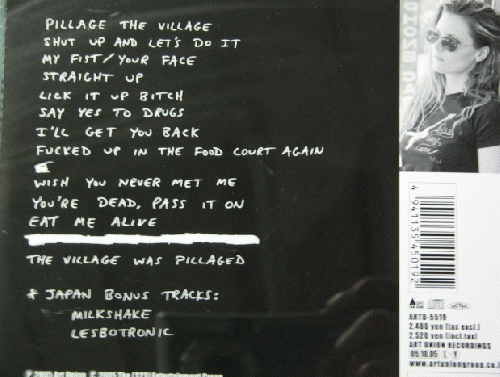 PILLAGE THE VILLAGE
SHUT UP AND LET'S DO IT
MY FIST/YOUR FACE
STRAIGHT UP
LICK IT UP BITCH
SAY YES TO DRUGS
I'LL GET YOU BACK
FUCKED UP IN THE FOOD COURT AGAIN
WISH YOU NEVER MET ME
YOU'RE DEAD, PASS IT ON
EAT ME ALIVE
THE VILLAGE WAS PILLAGED
* JAPAN BONUS TRACKS:
MILKSHAKE
LESBOTRONIC
4 941135 450192
ARTD-5519
2,400 yen [tax excl.]
2,520 yen [incl.tax]
ART UNION RECORDINGS
05.10.05
www.artuniongroup.co.j